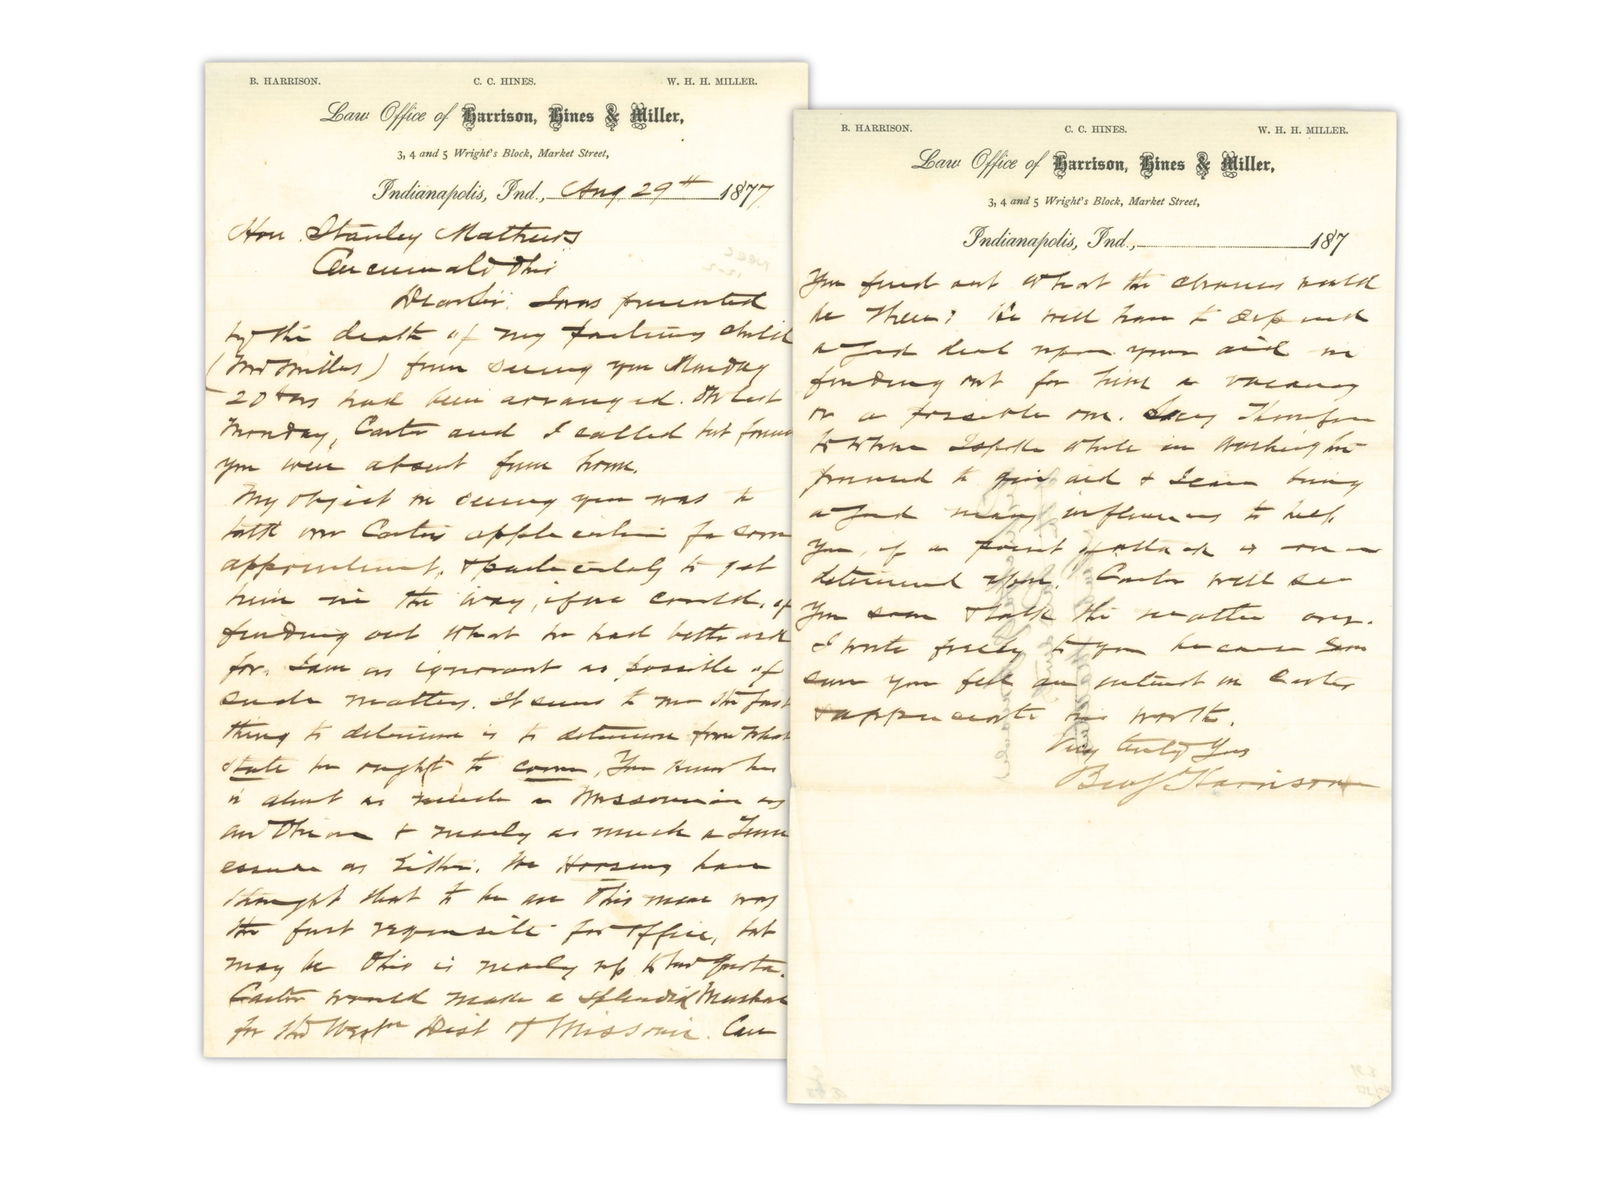 B. HARRISON. C. C. HINES. W. H. H. MILLER.
Law Office of Harrison, Hines & Miller,
3, 4 and 5 Wright's Block, Market Street,
Indianapolis, Ind., Aug 29th 1877
Hon. Stanley Mathews
Cincinnati Ohio
Dear Sir. I was prevented
by the death of my partners child
(Mr Miller) from seeing you Monday
20 as had been arranged. On last
Monday, Carter and I called but found
you were absent from home.
My object in seeing you was to
talk over Carters application for some
appointment, & particularly to get
him in the way, if we could, of
finding out what he had better ask
for. I am as ignorant as possible of
such matters. It seems to me the first
thing to determine is to determine from what
State he ought to come, You know he
is about as much a Missourian as
an Ohioan & nearly as much a Tenn
essean as Either. We Hoosiers have
thought that to be an Ohio man was
the first requisite for office, but
may be Ohio is nearly up to her quota.
Carter would make a splendid Marshal
for the Westn Dist of Missouri. Can
B. HARRISON. C. C. HINES. W. H. H. MILLER.
Law Office of Harrison, Hines & Miller,
3, 4 and 5 Wright's Block, Market Street,
Indianapolis, Ind., 187
You find out what the chances would
be there? He will have to depend
a good deal upon your aid in
finding out for him a vacancy
or a possible one. Secy Thompson
to whom I spoke while in Washington
promised to give aid & I can bring
a good many influences to help
you, if a point of attack is once
determined upon. Carter will see
you soon & talk the matter over.
I write freely to you because I am
sure you feel an interest in Carter
& appreciate his worth.
Very truly Yrs
Benj Harrison